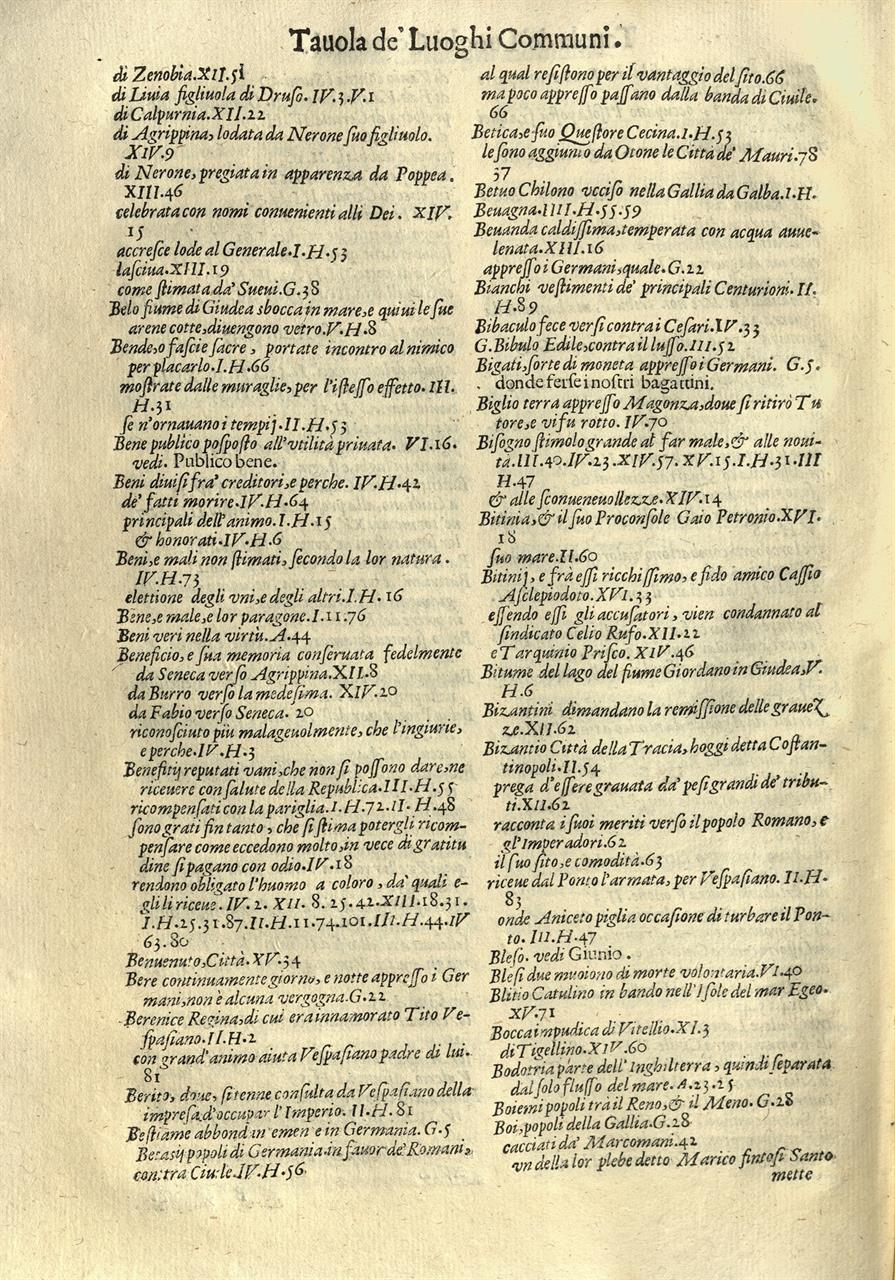 Tauola de' Luoghi Communi.
di Zenobia.XII.51
di Liuia figliuola di Druso. IV.3.V.1
di Calpurnia.XII.22
di Agrippina, lodata da Nerone suo figliuolo.
XIV.9
di Nerone, pregiata in apparenza da Poppea.
XIII.46
celebrata con nomi conuenienti alli Dei. XIV.
15
accresce lode al Generale.I.H.53
lasciua.XIII.19
come stimata da' Sueui.G.38
Belo fiume di Giudea sbocca in mare, e quiui le sue
arene cotte, diuengono vetro.V.H.8
Bende, o fascie sacre, portate incontro al nimico
per placarlo.I.H.66
mostrate dalle muraglie, per l'istesso effetto. III.
H.31
se n'ornauano i tempij.II.H.53
Bene publico posposto all'vtilità priuata. VI.16.
vedi. Publico bene.
Beni diuisi fra' creditori, e perche. IV.H.42
de' fatti morire.IV.H.64
principali dell'animo.I.H.15
& honorati.IV.H.6
Beni, e mali non stimati, secondo la lor natura.
IV.H.73
elettione degli vni, e degli altri.I.H.16
Bene, e male, e lor paragone.I.11.76
Beni veri nella virtù.A.44
Beneficio, e sua memoria conseruata fedelmente
da Seneca verso Agrippina.XII.8
da Burro verso la medesima. XIV.20
da Fabio verso Seneca. 20
riconosciuto più malageuolmente, che l'ingiurie,
e perche.IV.H.3
Benefitij reputati vani, che non si possono dare, ne
riceuere con salute della Republica.III.H.55
ricompensati con la pariglia.I.H.72.II.H.48
sono grati fin tanto, che si stima potergli ricom-
pensare come eccedono molto, in vece di gratitu
dine si pagano con odio.IV.18
rendono obligato l'huomo a coloro, da' quali e-
gli li riceue. IV.2. XII. 8. 25.42.XIII.18.31.
I.H.25.31.87.II.H.11.74.101.III.H.44.IV
63.80
Benuenuto, Città.XV.34
Bere continuamente giorno, e notte appresso i Ger
mani, non è alcuna vergogna.G.22
Berenice Regina, di cui era innamorato Tito Ve-
spasiano.II.H.2
con grand'animo aiuta Vespasiano padre di lui.
81
Berito, doue, si tenne consulta da Vespasiano della
impresa d'occupar l'Imperio. II.H.81
Bestiame abbond in emen e in Germania. G.5
Betasij popoli di Germania in fauor de' Romani,
contra Ciuile.IV.H.56
al qual resistono per il vantaggio del sito.66
ma poco appresso passano dalla banda di Ciuile.
66
Betica, e suo Questore Cecina.I.H.53
le sono aggiunto da Otone le Città de' Mauri.78
37
Betuo Chilono vcciso nella Gallia da Galba.I.H.
Beuagna.IIII.H.55.59
Beuanda caldissima, temperata con acqua auue-
lenata.XIII.16
appresso i Germani, quale.G.22
Bianchi vestimenti de' principali Centurioni. II.
H.89
Bibaculo fece versi contra i Cesari.IV.33
G.Bibulo Edile, contra il lusso.III.52
Bigati, sorte di moneta appresso i Germani. G.5.
donde forse i nostri bagattini.
Biglio terra appresso Magonza, doue si ritirò Tu
tore, e vi fu rotto. IV.70
Bisogno stimolo grande al far male, & alle noui-
tà.III.40.IV.23.XIV.57.XV.15.I.H.31.III
H.47
& alle sconueneuollezze.XIV.14
Bitinia, & il suo Proconsole Gaio Petronio.XVI.
18
suo mare.II.60
Bitinij, e fra essi ricchissimo, e fido amico Cassio
Asclepiodoto.XVI.33
essendo essi gli accusatori, vien condannato al
sindicato Celio Rufo.XII.22
e Tarquinio Prisco. XIV.46
Bitume del lago del fiume Giordano in Giudea, V.
H.6
Bizantini dimandano la remissione delle grauez
ze.XII.62
Bizantio Città della Tracia, hoggi detta Costan-
tinopoli.II.54
prega d'essere grauata da' pesi grandi de' tribu-
ti.XII.62
racconta i suoi meriti verso il popolo Romano, e
gl'Imperadori.62
il suo sito, e comodità.63
riceue dal Ponto l'armata, per Vespasiano. II.H.
83
onde Aniceto piglia occasione di turbare il Pon-
to. III.H.47
Bleso. vedi Giunio.
Blesi due muoiono di morte volontaria.VI.40
Blitio Catulino in bando nell'Isole del mar Egeo.
XV.71
Bocca impudica di Vitellio.XI.3
di Tigellino.XIV.60
Bodotria parte dell'Inghilterra, quindi separata
dal solo flusso del mare. A.23.25
Boiemi popoli tra il Reno, & il Meno. G.28
Boi, popoli della Gallia.G.28
cacciati da' Marcomani.42
vn della lor plebe detto Marico fintosi Santo
mette